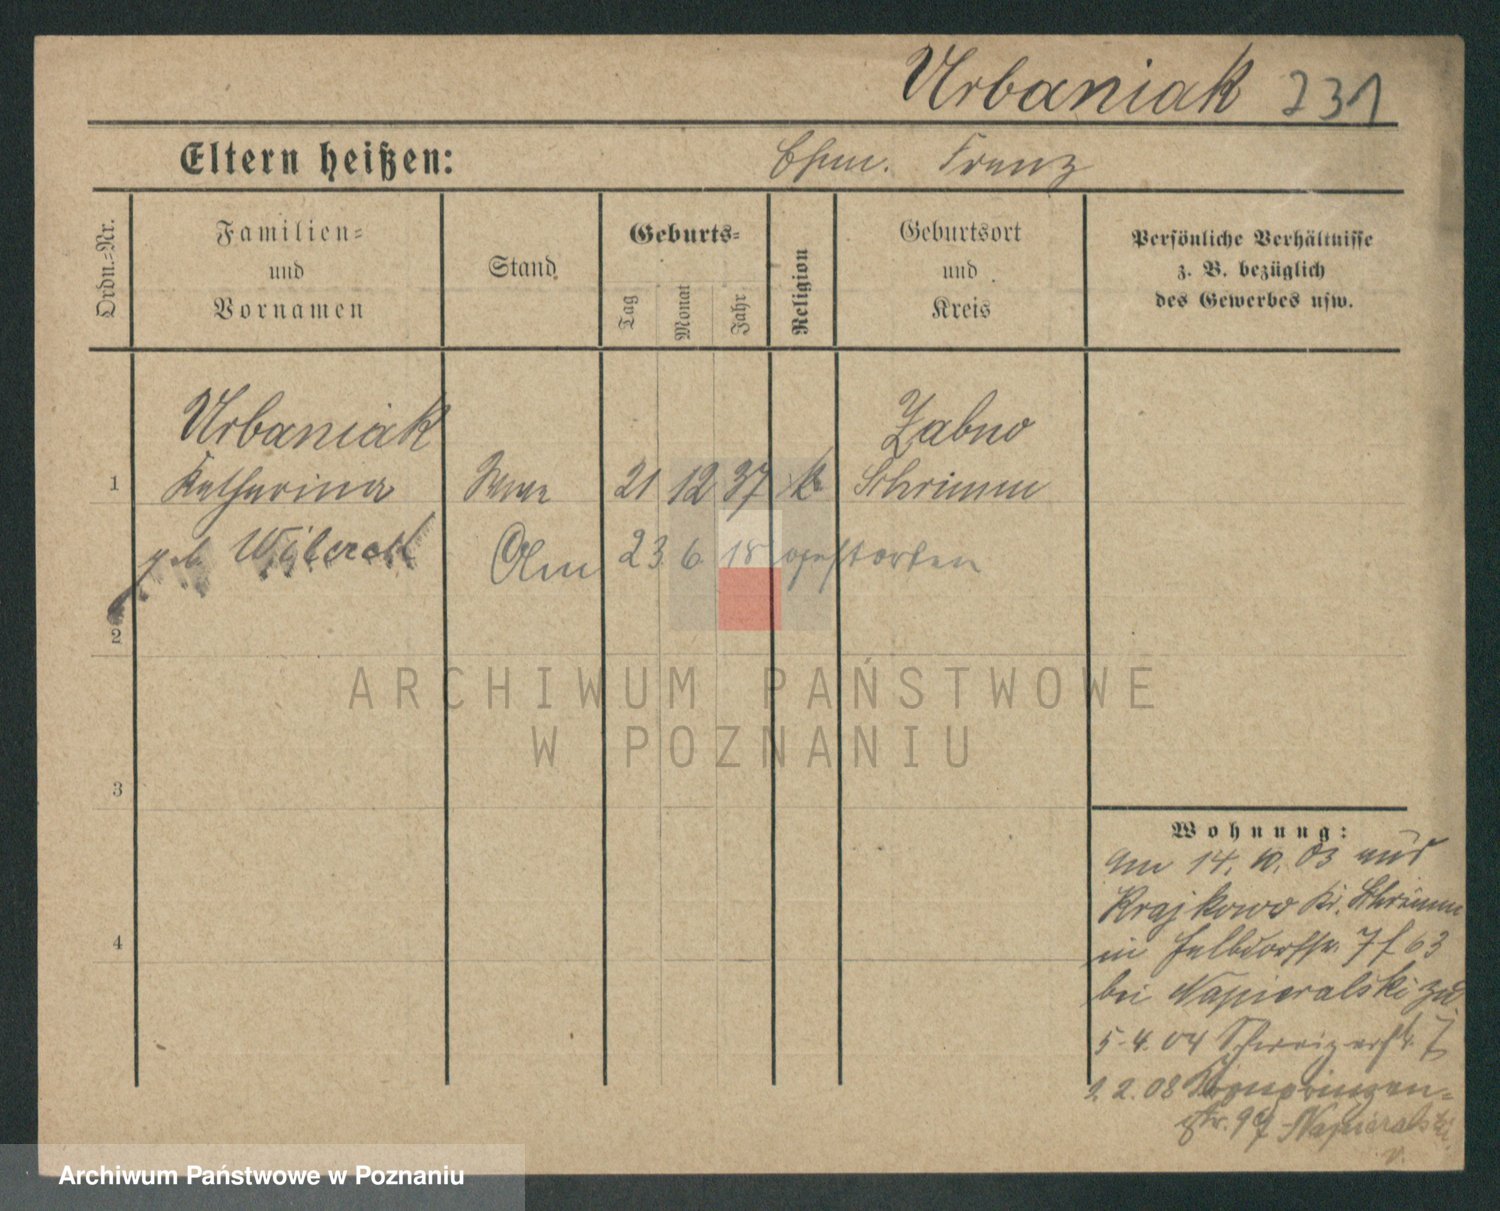 Urbaniak 231
Eltern heißen:
Ehem. Franz
Ordn.-Nr.
Familien-
und
Vornamen
Stand
Geburts-
Tag
Monat
Jahr
Religion
Geburtsort
und
Kreis
Persönliche Verhältnisse
z. B. bezüglich
des Gewerbes usw.
Urbaniak
Zabno
1 Katharina Wwe 21 12 37 k Schrimm
geb.
23 6 18 gestorben
2
3
4
Wohnung:
Am 14. 10. 03 aus
Krajkowo Kr. Schrimm
in 7 63
bei Napieralski zu
5. 4. 04 Schweizerstr. 7
2. 2. 08 Kronprinzen-
str. 99 Napieralski
ARCHIWUM PAŃSTWOWE
W POZNANIU
Archiwum Państwowe w Poznaniu